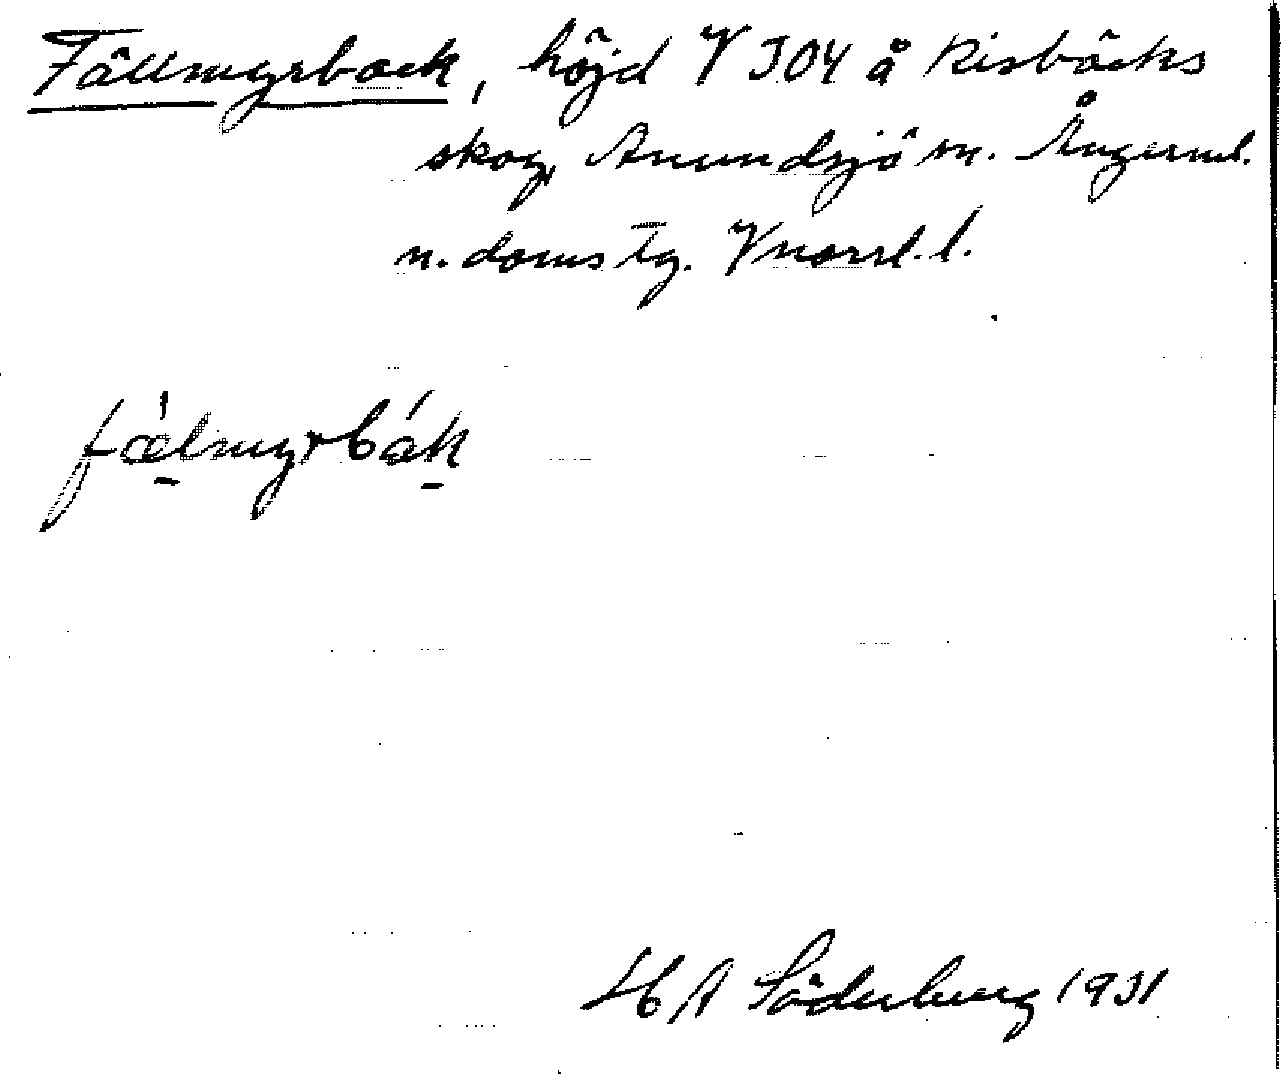 Fällmyrback, höjd V 304 å Risbäcks
skog, Anundsjö sn. Ångerml.
n. doms tg. Vnorrl. l.
fæ̀lmyrbák
H A Söderberg 1931